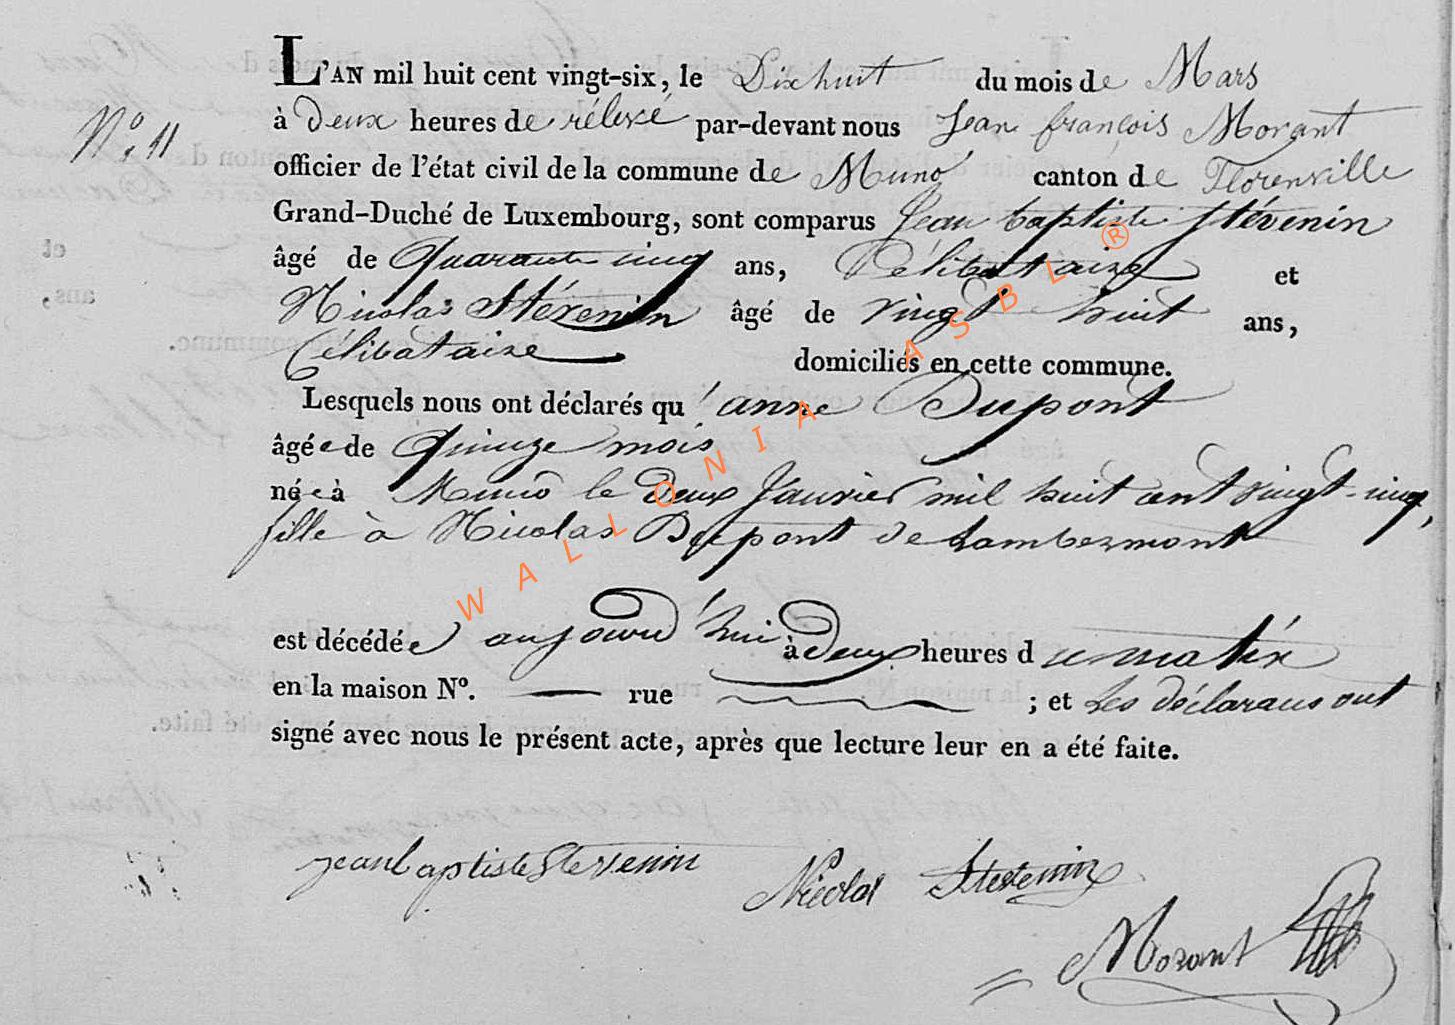 L'AN mil huit cent vingt-six, le Dixhuit du mois de Mars
N.° 11
à deux heures de rélevé par-devant nous Jean françois Morant
officier de l'état civil de la commune de Muno canton de Florenville
Grand-Duché de Luxembourg, sont comparus Jean baptiste Stévenin
âgé de Quarante cinq ans, Célibataire et
Nicolas Stévenin âgé de vingt huit ans,
Célibataire domiciliés en cette commune.
Lesquels nous ont déclarés qu'anne Dupont
âgée de Quinze mois
née à Muno le deux Janvier mil huit cent vingt-cinq,
fille à Nicolas Dupont de Lambermont
est décédée aujourd'hui à deux heures du matin
en la maison N°. — rue ; et Les déclarans ont
signé avec nous le présent acte, après que lecture leur en a été faite.
jeanbaptiste Stevenin
Nicolas Stevenin
Morant
WALLONIA ASBL ®